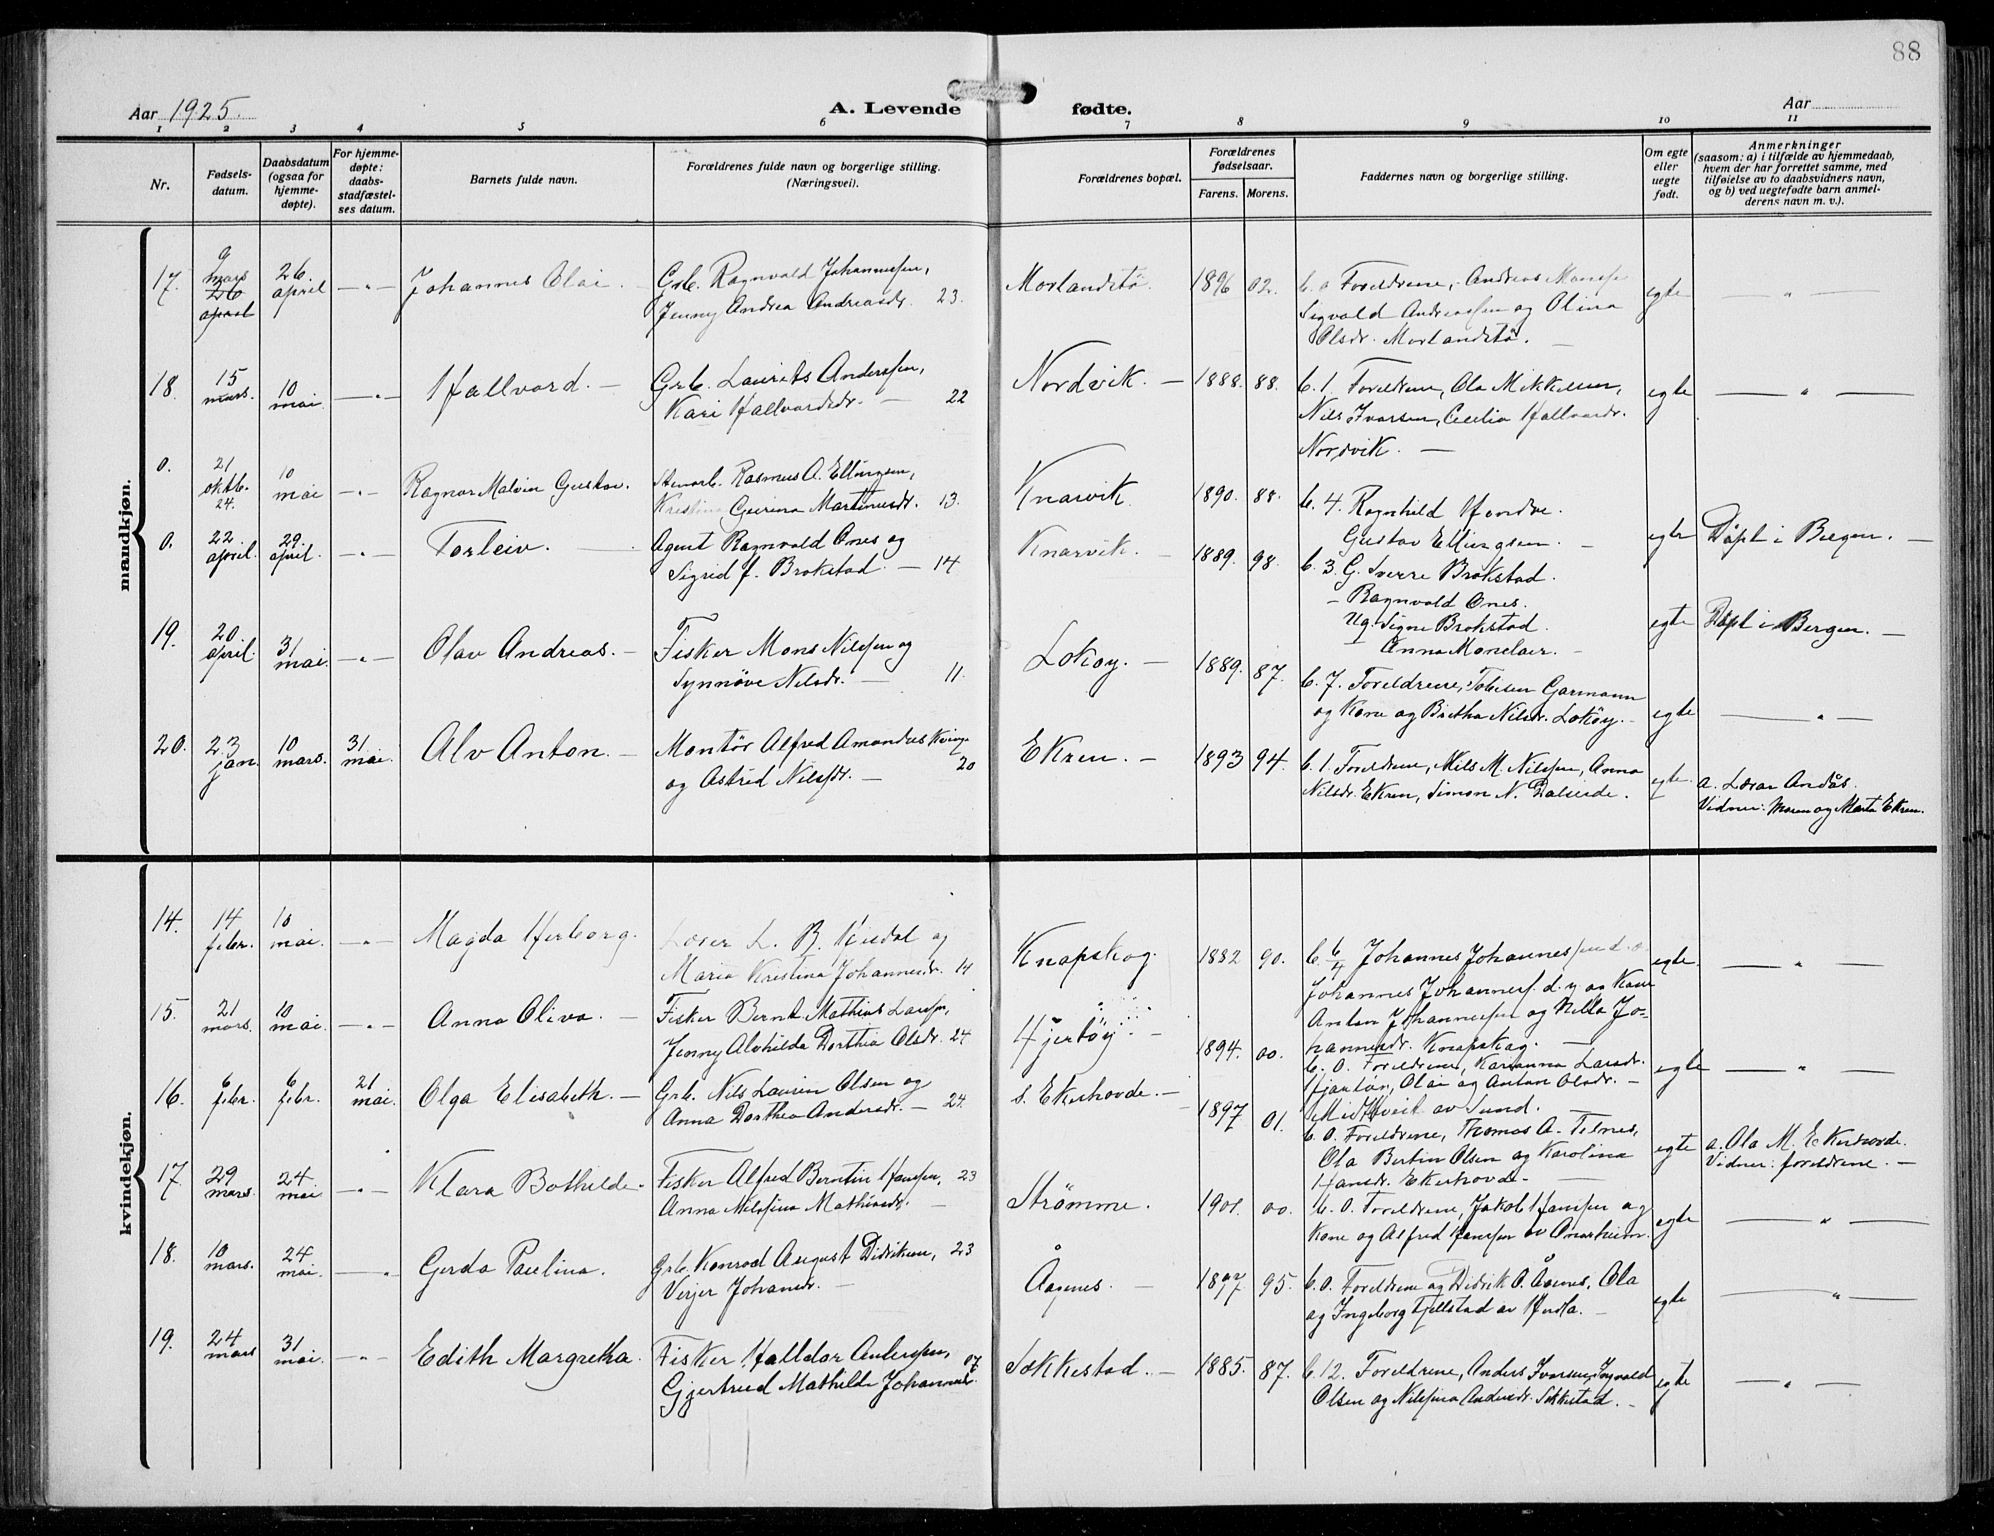 88
Aar 1925.
A. Levende fødte.
Aar
1 2 3 4 5 6 7 8 9 10 11
Nr.
Fødsels-
datum.
Daabsdatum
(ogsaa for
hjemme-
døpte).
For hjemme-
døpte:
daabs-
stadfæstel-
ses datum.
Barnets fulde navn.
Forældrenes fulde navn og borgerlige stilling.
(Næringsvei).
Forældrenes bopæl.
Forældrenes
fødselsaar.
Farens. Morens.
Faddernes navn og borgerlige stilling.
Om egte
eller
uegte
født.
Anmerkninger
(saasom: a) i tilfælde av hjemmedaab,
hvem der har forrettet samme, med
tilføielse av to daabsvidners navn,
og b) ved uegtefødte barn anmel-
derens navn m. v.).
mandkjøn.
17. 9 mars 26 april 26. april — " — Johannes Olai. Grb. Ragnvald Johannessen,
Jenny Andrea Andreasdr. 23.
Morlandstø. 1896 02. b. 0 Foreldrene, Andreas
Sigvald Andreassen og Olina
Olsdr. Morlandstø. —
egte — " —
18. 15 mars. 10 mai. — " — Hallvard. — Grb. Laurits Anderssen,
Kari Hallvardsdr. — 22
Nordvik. — 1888. 88. b. 1. Foreldrene, Ola Mikkelsen,
Nils Ivarsen, Cecilia Hallvardr.
Nordvik. —
egte — " —
0. 21 oktb. 24. 10 mai — " — Ragnar Malvin Gustav. Stenarb. Rasmus A. Ellingsen,
Kristina Gurina Martinusdr. 13.
Knarvik. 1890. 88. b. 4. Ragnhild
Gustav Ellingsen. —
egte Døpt i Bergen. —
0. 22. april. 29. april. — " — Torleiv. — Agent Ragnvald Ones og
Sigrid f. Brokstad. — 14
Knarvik. — 1889. 98. b. 3. G. Sverre Brokstad.
— Ragnvald Ones.
Ug. Signe Brokstad.
Anna
egte Døpt i Bergen. —
19. 20. april. 31 mai. — " — Olav Andreas. — Fisker Mons Nilssen og
Synnøve Nilsdr. — 11.
Lokøy. — 1889. 87. b. 7. Foreldrene, Garmann
og Kone og Bertha Nilsdr. Lokøy. —
egte — " —
20. 23 jan. 10 mars. 31 mai. Alv Anton. — Montør Alfred Amandus
og Astrid Nilsdr. — 20
Ekren. — 1893 94. b. 1. Foreldrene, Nils M. Nilssen, Anna
Nilsdr. Ekren, Simon N. Dalseide.
egte. a. Lærar Andås.
Vidner: Moren og Marta Ekren.
kvindekjøn.
14. 14 febr. 10 mai. — " — Magda Herborg. Lærer L. B. og
Maria Kristina Johannesdr. 14
Knapskog. 1882 90. b. 6/4 Johannes Johannessen d. e
Johannes Johanness. d. y og Kone
Anton Johannessen og Nilla Jo-
hannesdr. Knapskog. —
egte. — " —
15. 21 mars. 10 mai. — " — Anna Oliva. — Fisker Bernt Mathias Larssen,
Jenny Alvhilda Dorthia Olsdr. 24
Hjertøy. — 1894. 00. b. 0. Foreldrene, Karianna Larsdr.
Hjartøy, Olai og Anton Olsdr. —
Midttveit av Sund.
egte — " —
16. 6 febr. 6 febr. 21 mai. Olga Elisabeth. — Grb. Nils Laurin Olsen og
Anna Dorthea Andersdr. — 24.
s. Ekerhovde. — 1897 01. b. 0. Foreldrene, Thomas A. Telnes,
Ola Bertin Olsen og Karolina
Hansdr. Ekerhovde. —
egte a. Ola M. Ekerhovde.
Vidner: foreldrene. —
17. 29 mars. 24. mai — " — Klara Bothilde. Fisker Alfred Berntin Hanssen, 23
Anna Nilssina Mathiasdr. —
Strømme. 1901. 00. b. 0. Foreldrene, Jakob Hanssen og
Kone og Alfred Hanssen av
egte — " —
18. 10 mars. 24 mai. — " Gerda Paulina. Grb. Konrad August Didriksen, 23
Verjer Johansdr. —
Ågenes. — 1897 95. b. 0. Foreldrene og Didrik O. Ågenes, Ola
og Ingeborg Fjellstad av Herdla. —
egte — " —
19. 24 mars 31 mai. — " — Edith Margretha. Fisker Halldor Anderssen, 07
Gjertrud Mathilde Johannesdr.
Sekkestad. — 1885. 87. b. 12. Foreldrene, Anders Ivarsen, Ingvald
Olsen og Nilssina Andersdr. Sekkestad. —
egte — " —